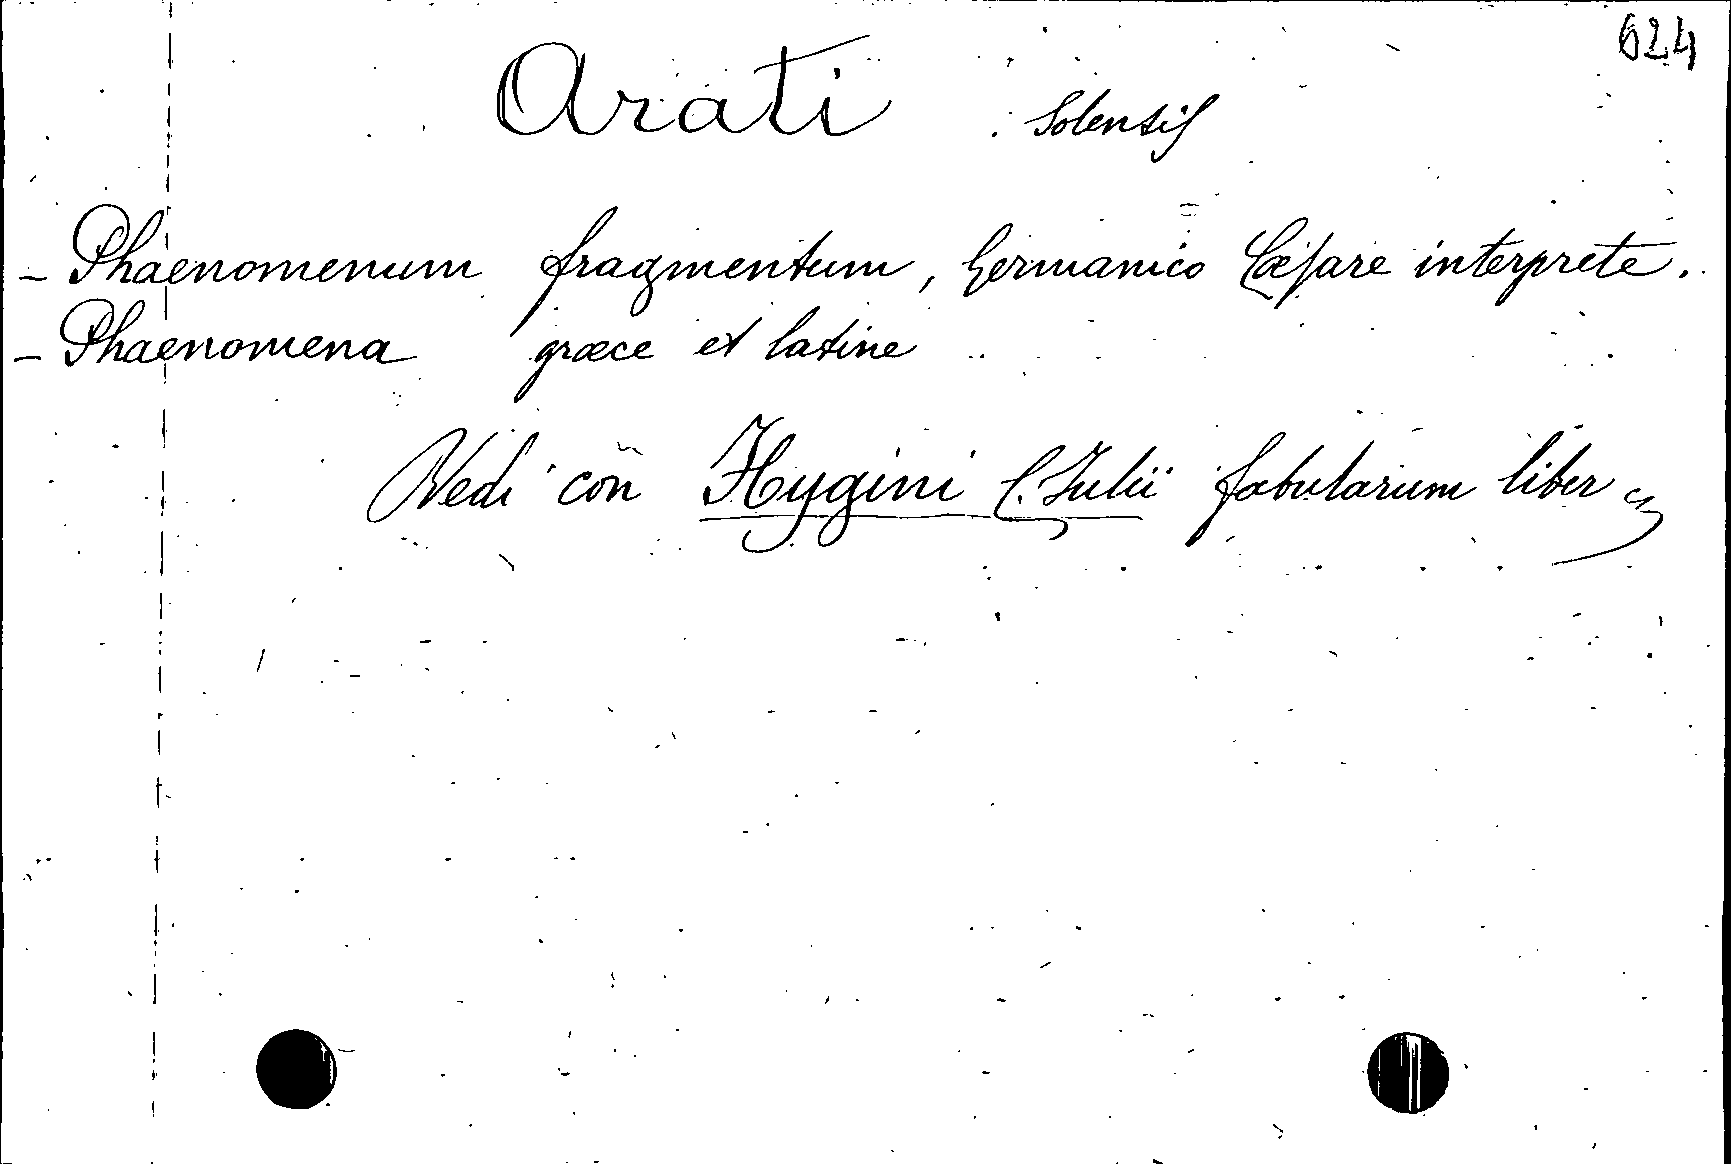 624
Arati Solensis
- Phaenomenum fragmentum, Germanico Cæsare interprete.
- Phaenomena græce et latine
Vedi con Hygini C. Julii fabularum liber